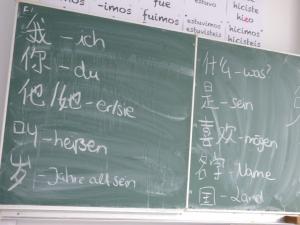 -imos
fue
fuimos
estuvimos
estuvisteis
hiciste
hizo
hicimos
hicisteis
我 - ich
你 - du
他/她 - er/sie
叫 - heißen
岁 - Jahre alt sein
什么 - was?
是 - sein
喜欢 - mögen
名字 - Name
国 - Land